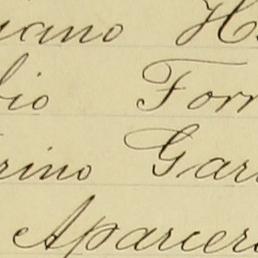 ciano H
bio Forr
rino Gar
Aparcer